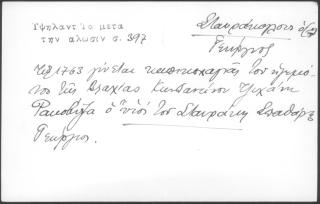 Ὑψηλαντ Τα μετα
την αλωσιν σ. 397
Σταυράκογλους ὁ
Γεώργιος
Τῷ 1763 γίνεται καπικεχαγιᾶς τοῦ ἡγεμό
νος τῆς Βλαχίας Κωνσταντίνου Τζιχάνη
Ρακοβίτζα ὁ υἱός τοῦ Σταυράκη Σπαθάρη
Γεώργιος.